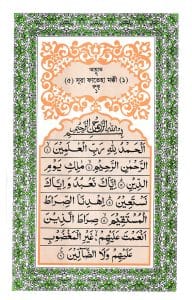 আয়াত
(৫) সূরা ফাতেহা মক্কী (১)
রুকু
১
بِسْمِ اللّٰهِ الرَّحْمٰنِ الرَّحِيْمِ
اَلْحَمْدُ لِلّٰهِ رَبِّ الْعٰلَمِيْنَ ۝
الرَّحْمٰنِ الرَّحِيْمِ ۝ مٰلِكِ يَوْمِ
الدِّيْنِ ۝ اِيَّاكَ نَعْبُدُ وَ اِيَّاكَ
نَسْتَعِيْنُ ۝ اِهْدِنَا الصِّرَاطَ
الْمُسْتَقِيْمَ ۝ صِرَاطَ الَّذِيْنَ
اَنْعَمْتَ عَلَيْهِمْ ۝ غَيْرِ الْمَغْضُوْبِ
عَلَيْهِمْ وَلَا الضَّآلِّيْنَ ۝